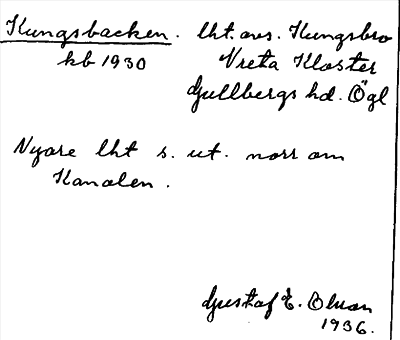 Kungsbacken. lht. avs. Kungsbro
kb 1930 Vreta Kloster
Gullbergs hd. Ögl
Nyare lht s. ut. norr om
Kanalen.
Gustaf E. Olsson
1936.